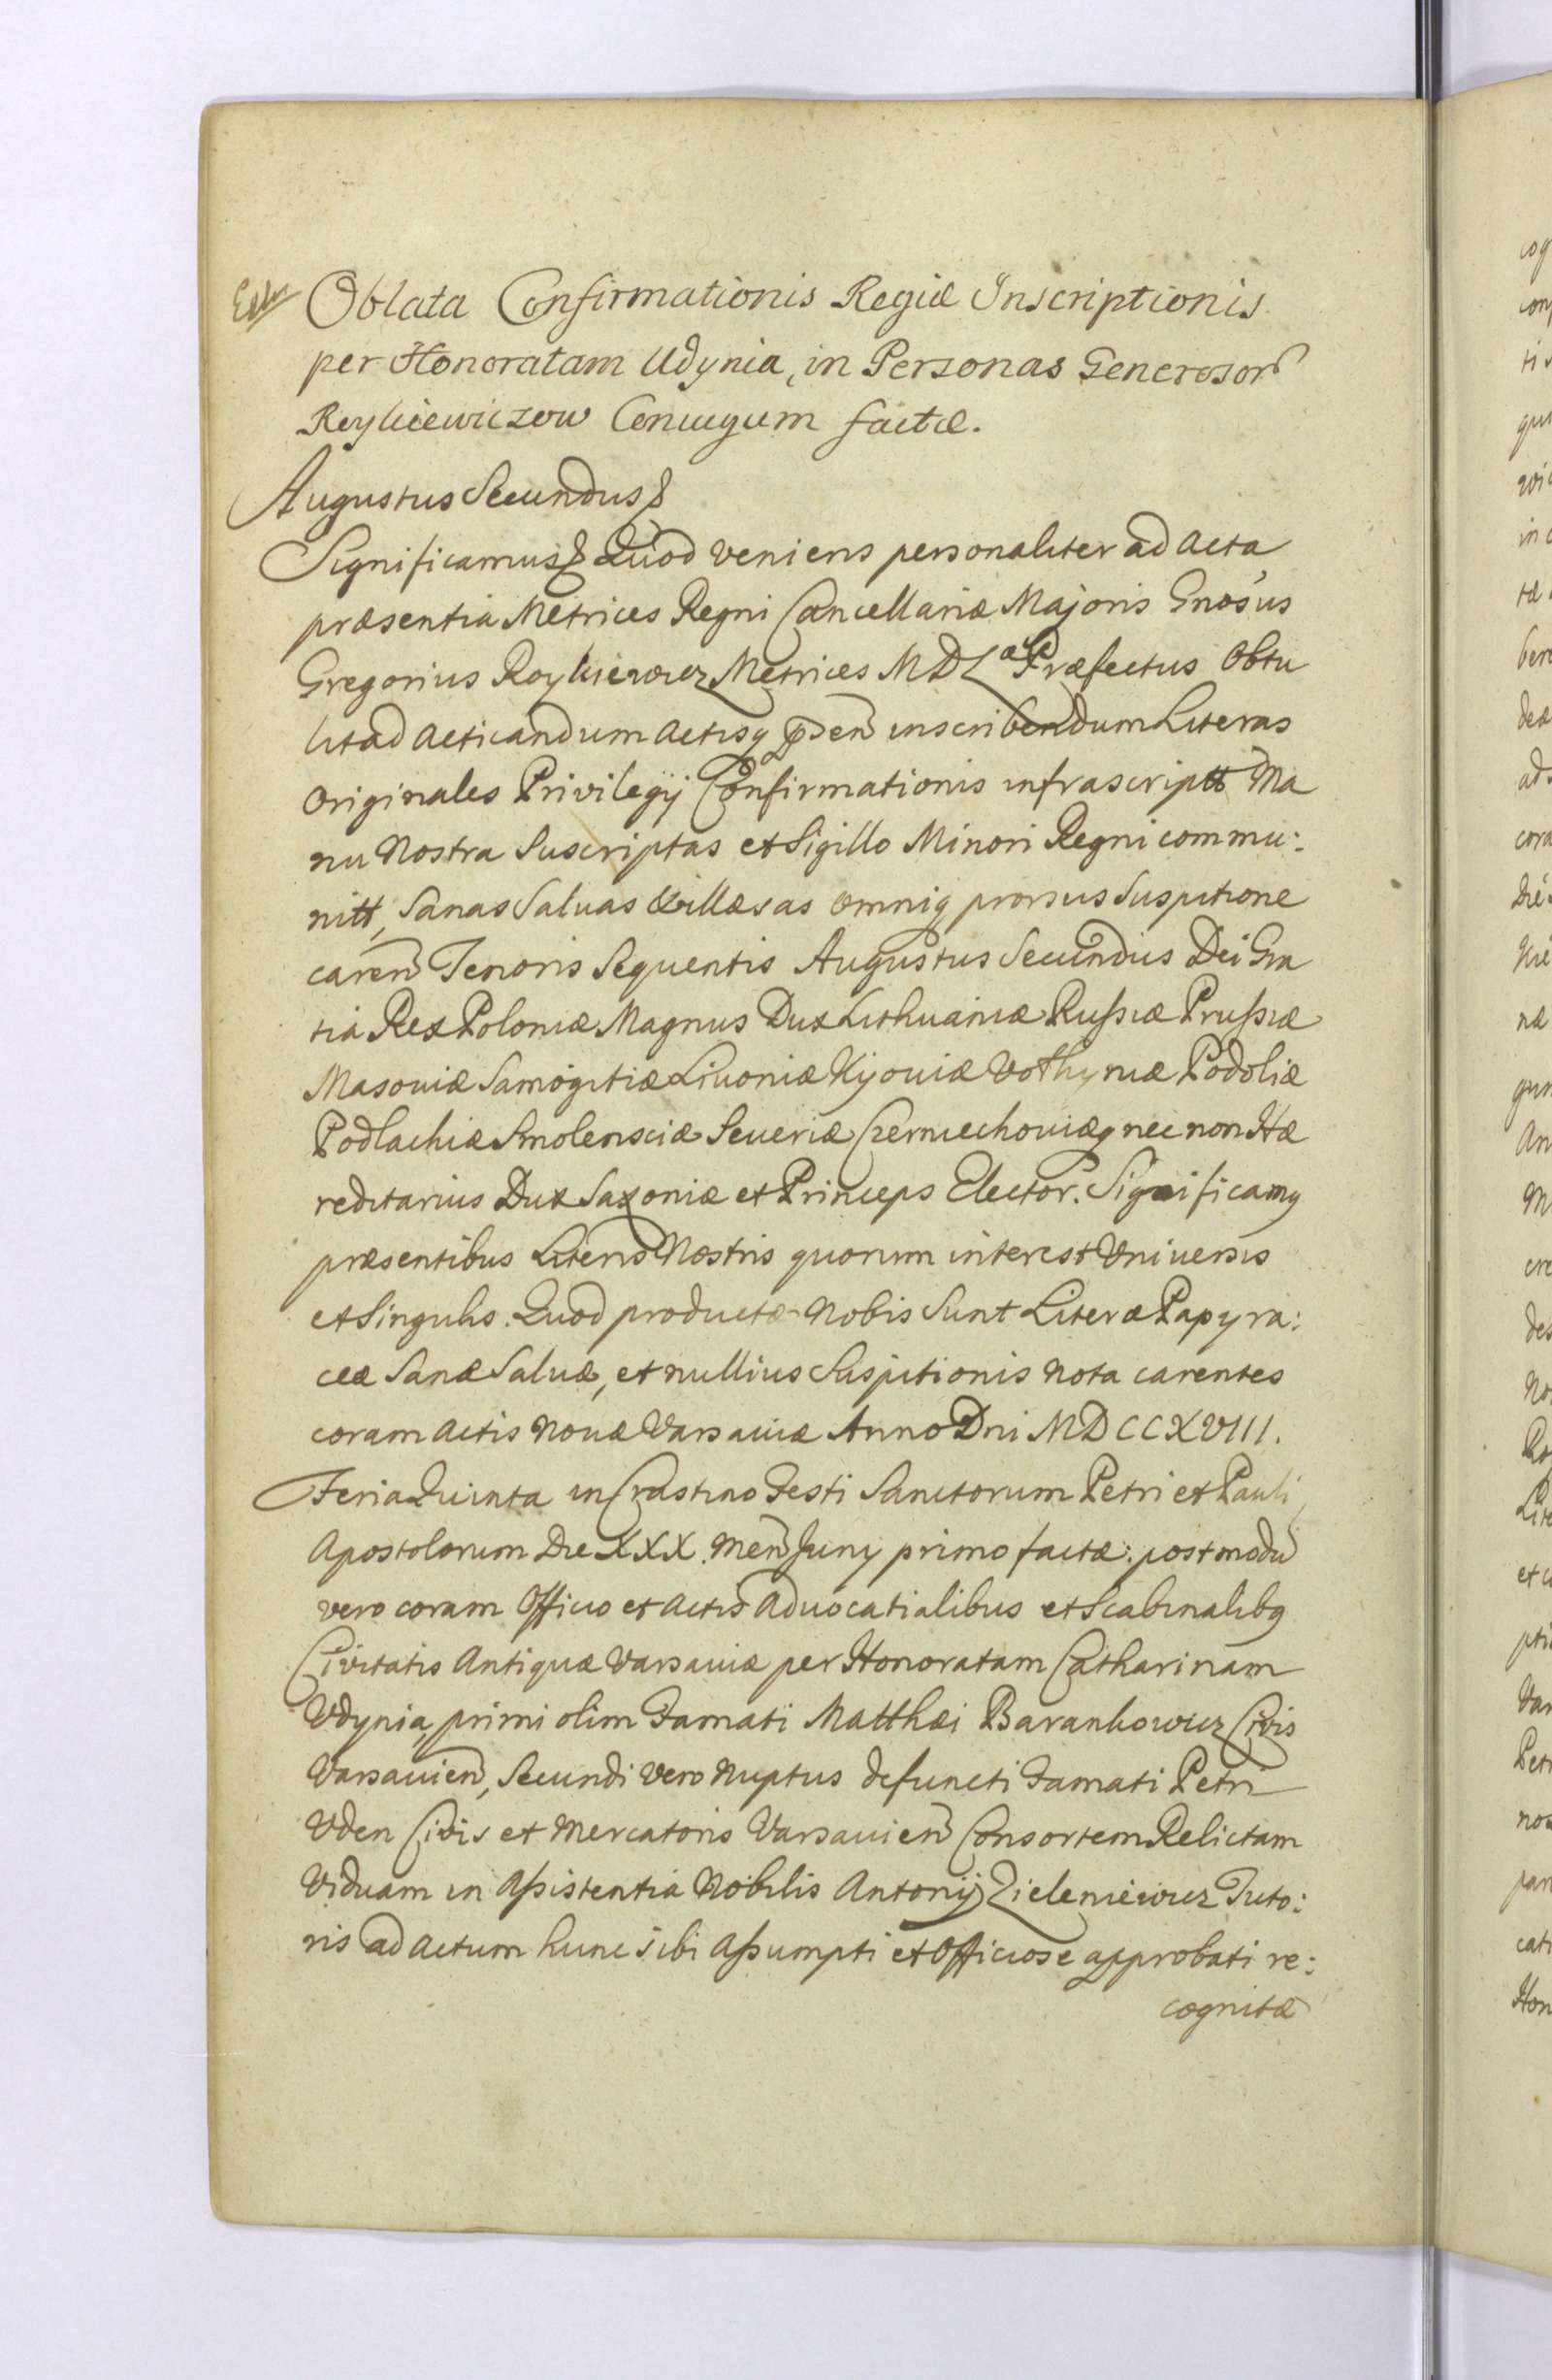 Oblata Confirmationis Regiæ Inscriptionis
per Honoratam Udynia, in Personas Generosor
Roykiewiczow Coniugum factæ.
Augustus Secundus &
Significamus & Quod veniens personaliter ad Acta
præsentia Metrices Regni Cancellariæ Majoris Gnosus
Gregorius Roykiewicz Metrices MDL Præfectus Obtu
lit ad Acticandum Actisq psen inscribendum Literas
Originales Privilegij Confirmationis infrascriptt Ma
nu Nostra Suscriptas et Sigillo Minori Regni commu:
nitt, Sanas Saluas & illæsas omniq prorsus Suspitione
caren Tenoris Sequentis Augustus Secundus Dei Gra
tia Rex Poloniæ Magnus Dux Lithuaniæ Russiæ Prussiæ
Masouiæ Samogitiæ Liuoniæ Kijouiæ Volhyniæ Podoliæ
Podlachiæ Smolensciæ Seueriæ Czerniechouiæq nec non Hæ
reditarius Dux Saxoniæ et Princeps Elector. Significamq
præsentibus Literis Nostris quorum interest Vniuersis
et Singulis. Quod productæ Nobis Sunt Literæ Papyra:
ceæ Sanæ Saluæ, et nullius Suspitionis nota carentes
coram Actis Nouæ Varsauiæ Anno Dni MDCCXVIII.
Feria Quinta in Crastino Festi Sanctorum Petri et Pauli
Apostolorum Die XXX. Men Juny primo factæ: postmodu
vero coram Officio et Actis Aduocatialibus et Scabinalibq
Civitatis Antiquæ Varsauiæ per Honoratam Catharinam
Vdynia, primi olim Famati Matthæi Barankowicz Civis
Varsauien, Secundi vero Nuptus defuncti Famati Petri
Vden Civis et Mercatoris Varsauien Consortem Relictam
Viduam in Assistentia Nobilis Antonij Zieleniewicz Tuto:
ris ad Actum hunc sibi Assumpti et Officiose approbati re:
cognitæ